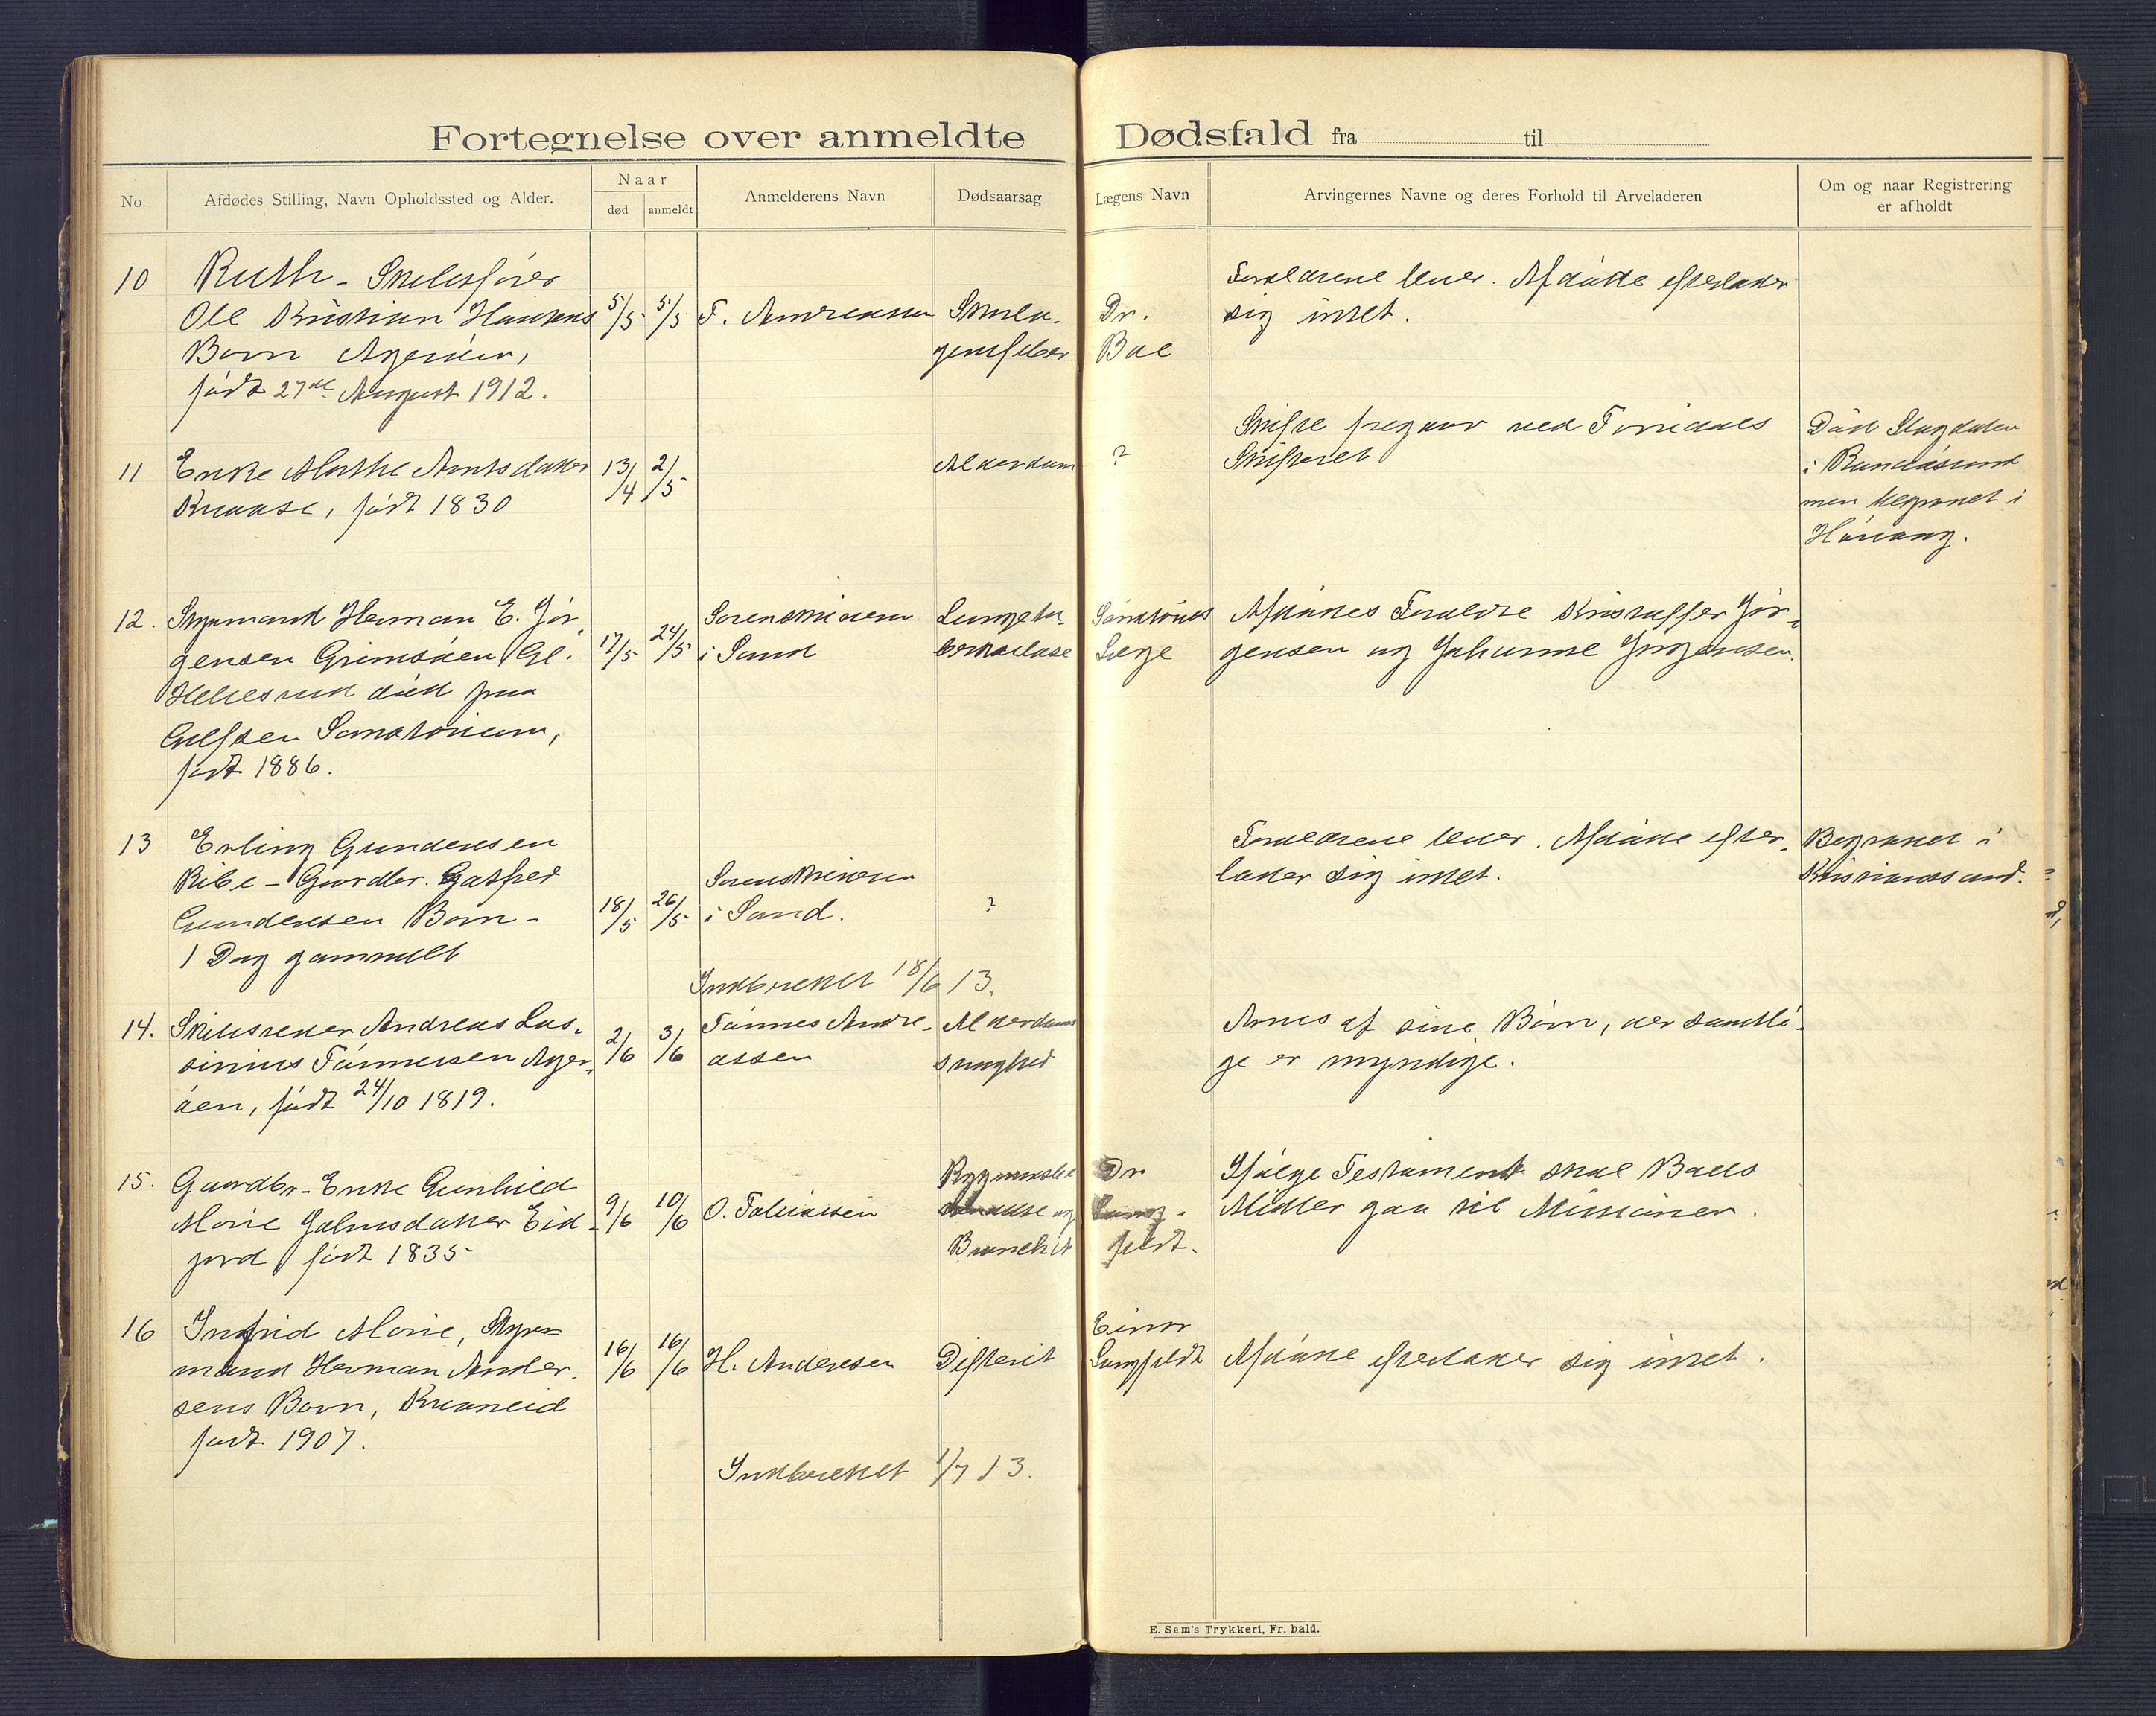 Fortegnelse over anmeldte Dødsfald fra til
No.
Afdødes Stilling, Navn Opholdssted og Alder.
Naar
død
anmeldt
Anmelderens Navn
Dødsaarsag
Lægens Navn
Arvingernes Navne og deres Forhold til Arveladeren
Om og naar Registrering
er afholdt
10
Ruth - Skibsfører
Ole Kristian Hansens
Barn Agerøen,
født 27de August 1912.
5/5
5/5
F. Andreassen
Skarla-
gensfeber
Dr.
Boe
Forældrene lever. Afdøde efterlader
sig intet.
11
Enke Marthe Amtsdatter
Knaase, født 1830
13/4
2/5
Alderdom
?
Skifte foregaar ved Torridals
Skifteret
Død Slagdalen
i Randøsund
men begravet i
Høvaag.
12.
Styrmand Herman E. Jør-
gensen Grimsøen Gl.
Hellesund død paa
Grefsen Sanatorium,
født 1886.
17/5
24/5
Sorenskriveren
i Sand
Lungetu-
berkulose
Sanatoriets
Læge
Afdødes Forældre Kristoffer Jør-
gensen og Johanne Jørgensen.
13
Erling Gundersen
Ribe - Gaardbr. Gotfred
Gundersen Barn -
1 Dag gammelt
18/5
26/5
Sorenskriveren
i Sand.
?
Forældrene lever. Afdøde efter-
lader sig intet.
Begravet i
Kristianssand.
Indberettet 18/6 13.
14.
Skibsreder Andreas Las-
sinius Tønnessen Ager-
øen, født 24/10 1819.
2/6
3/6
Tønnes Andre-
assen
Alderdoms
svaghed
Arves af sine Børn, der samtli-
ge er myndige.
15.
Gaardbr-Enke Gunhild
Marie Jahnsdatter Eid-
jord født 1835
9/6
10/6
O. Tobiassen
og
Bronchit
Dr
Lang-
feldt.
Ifølge Testament skal Boets
Midler gaa til Missionen.
16
Ingfrid Marie, Styr-
mand Herman Ander-
sens Barn, Kvaneid
født 1907.
16/6
16/6
H. Andersen
Difterit
Einar
Langfeldt
Afdøde efterlader sig intet.
Indberettet 1/7 13.
E. Sem's Trykkeri, Fr. hald.